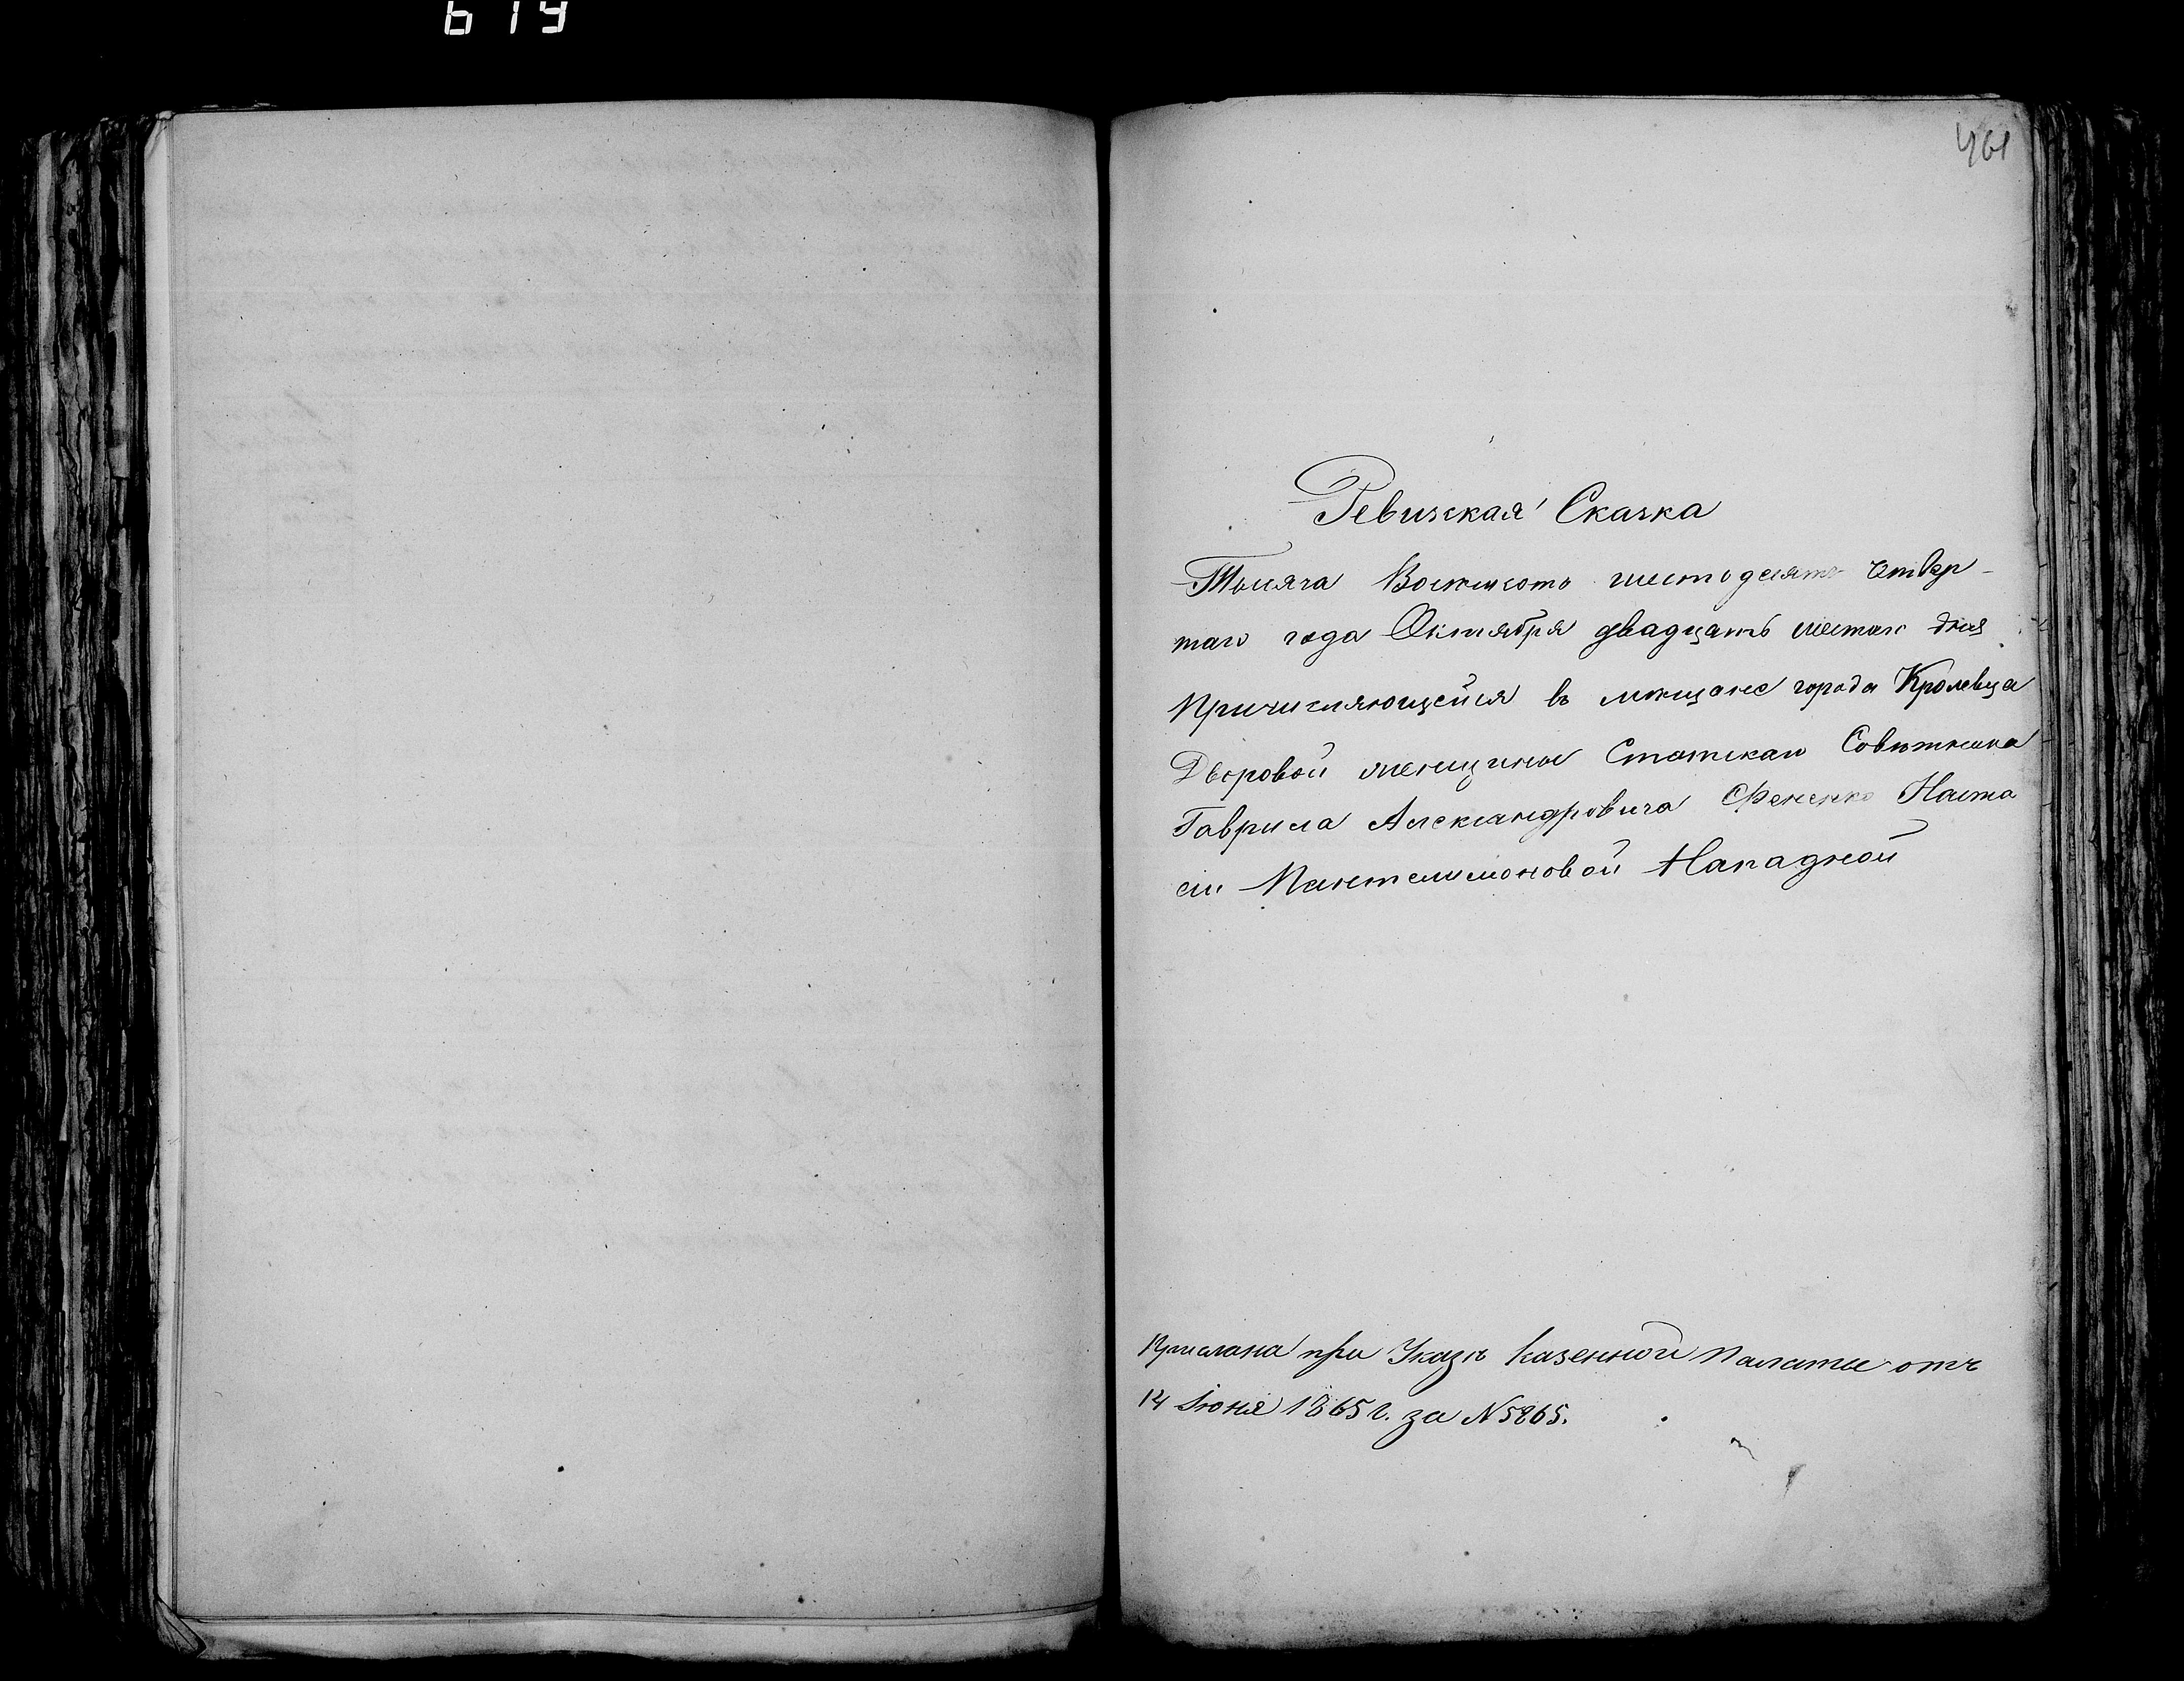 619
461
Ревизская Сказка
Тысяча Восемсотъ шестодесятъ четвер-
таго года Октября двадцать шестаго дня
Причисляющейся въ мѣщане города Кролевца
Дворовой женщины Статскаго Совѣтника
Гаврила Александровича Фененко Наста
сіи Пантелимоновой Нападной
Прислана при Указѣ Казенной Палаты отъ
14 Іюня 1865 г. за N 5865.